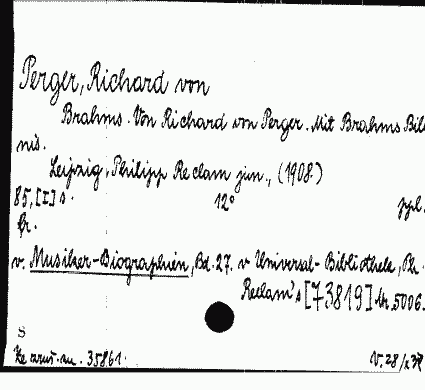 Perger, Richard von
Brahms. Von Richard von Perger. Mit Brahms Bild
nis.
Leipzig, Philipp Reclam jun., (1908)
85, [I] s. 12° ppl.
br.
v. Musiker-Biographien, Bd. 27. v Universal-Bibliothek, Ph.
Reclam's [73819] Nr. 5006.
S
35861. V, 28/